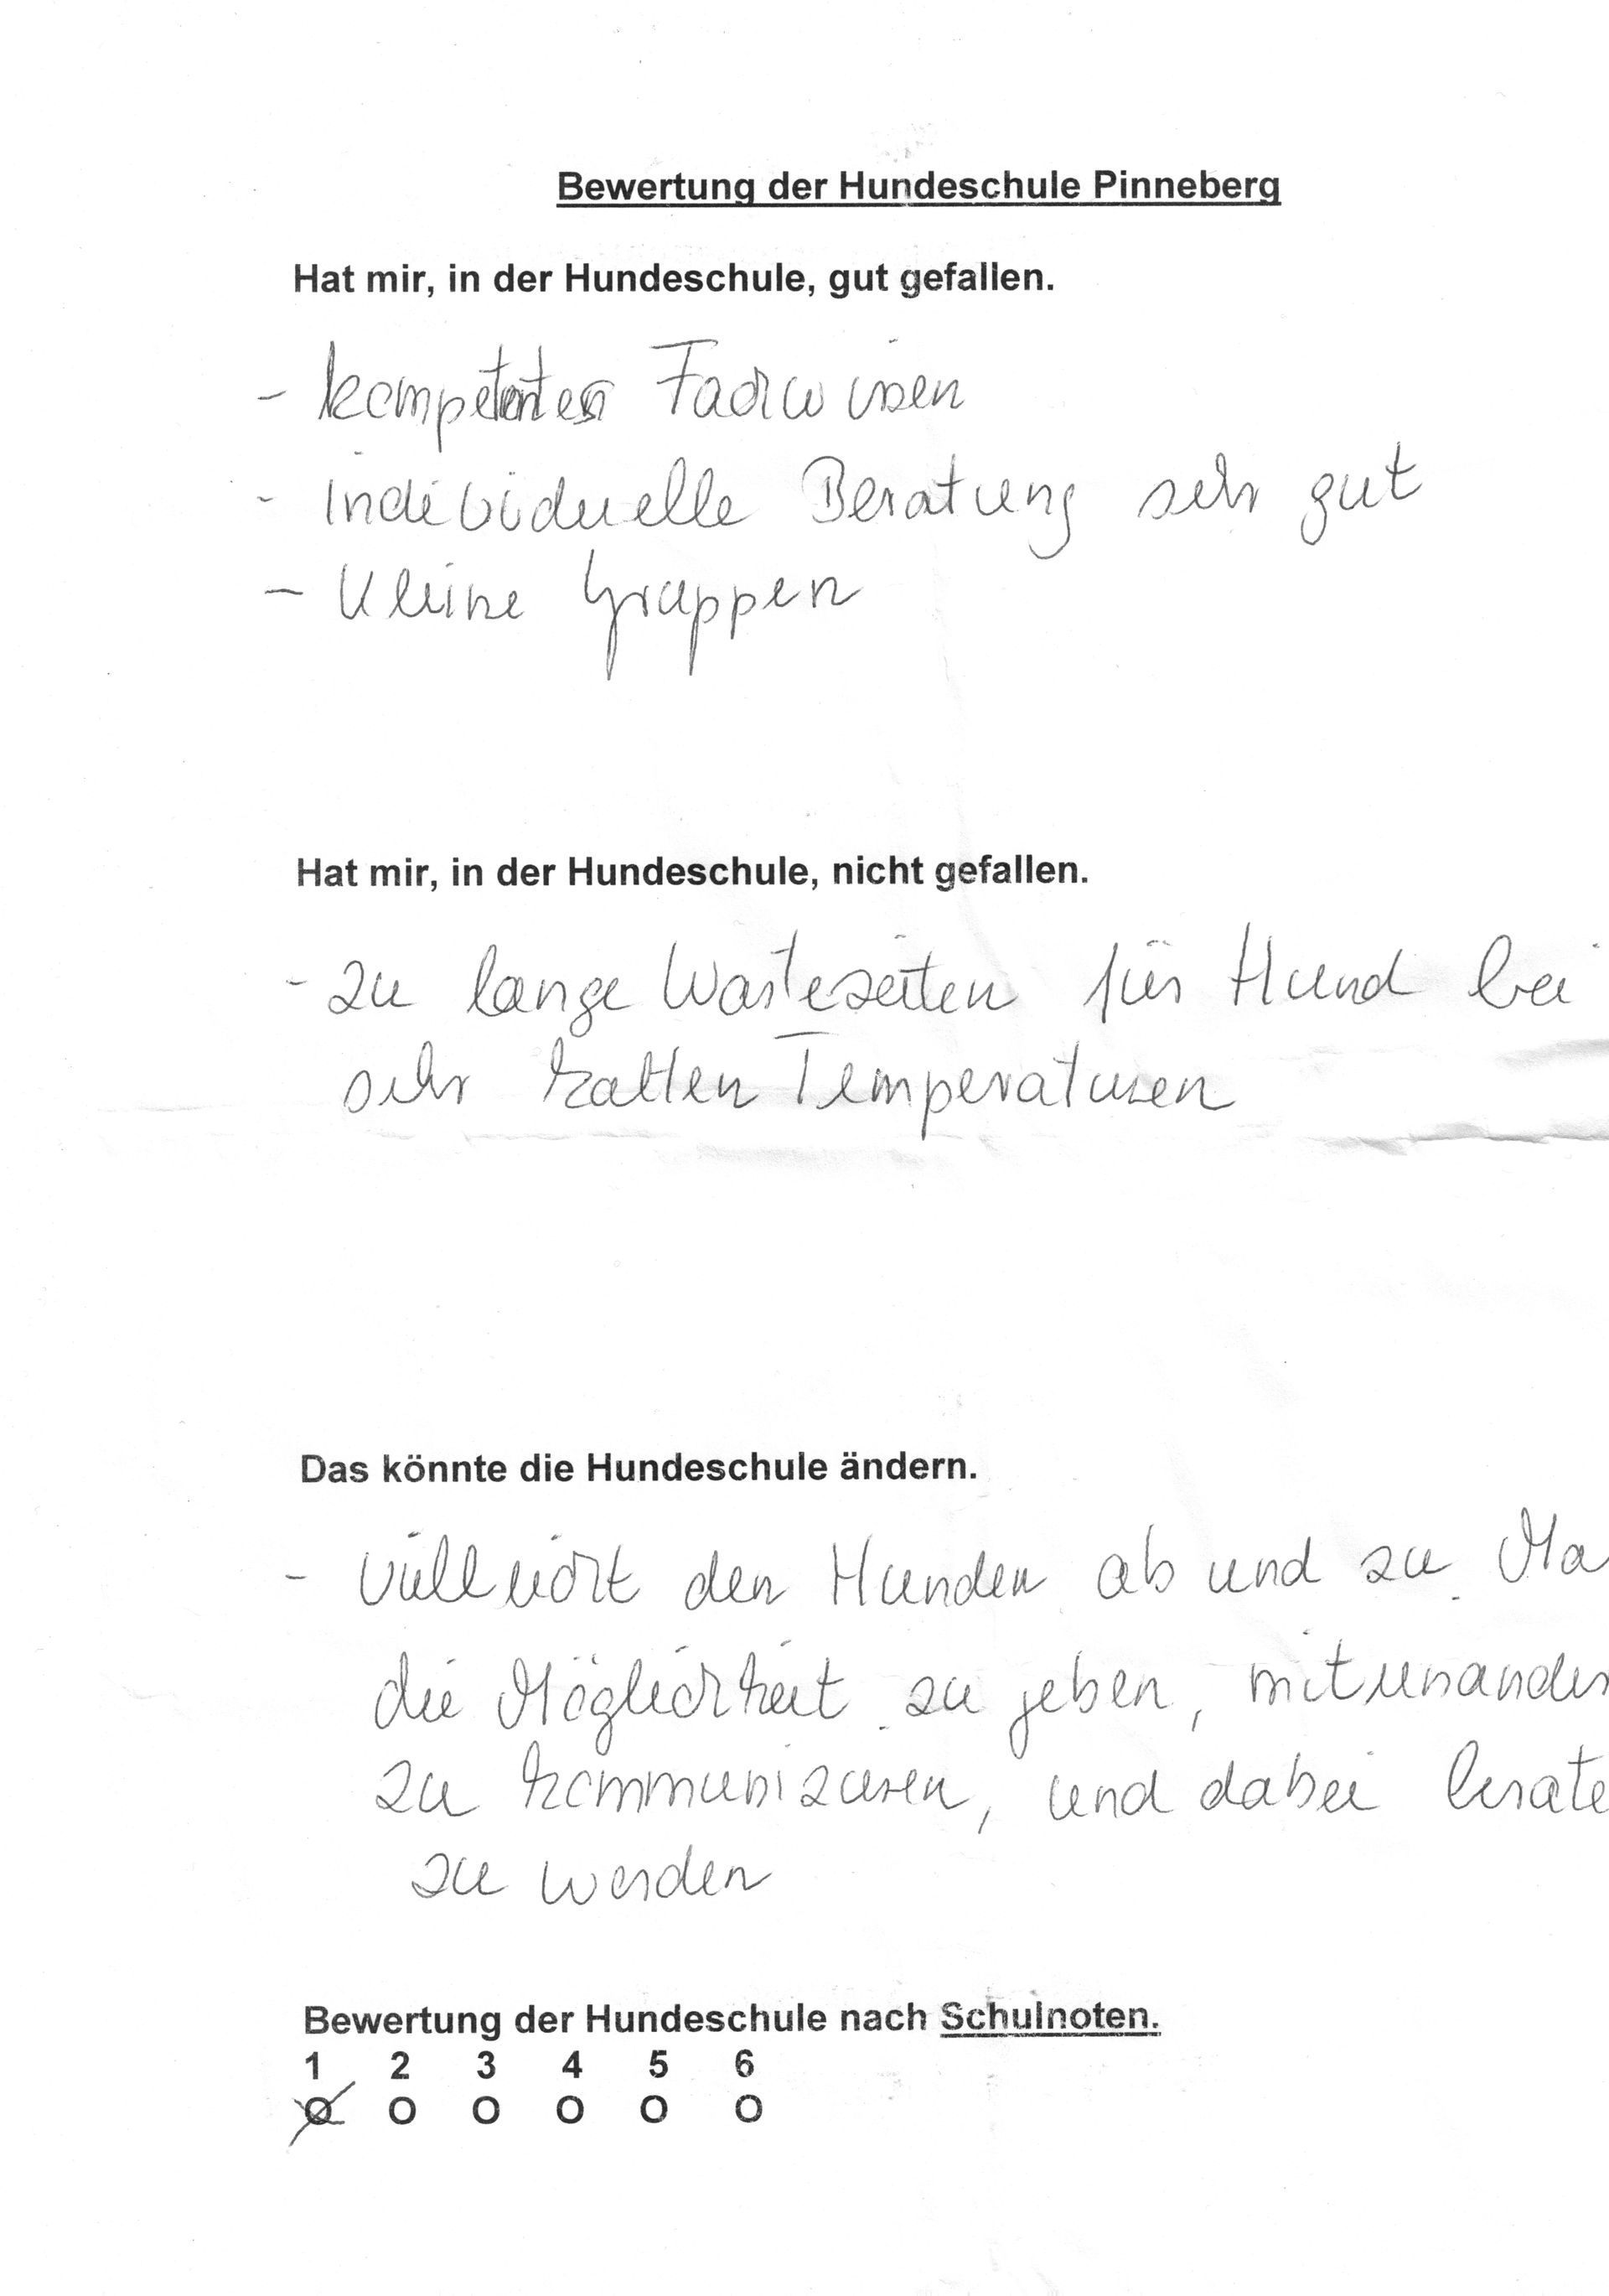 Bewertung der Hundeschule Pinneberg
Hat mir, in der Hundeschule, gut gefallen.
- kompetentes Fachwissen
- individuelle Beratung sehr gut
- kleine Gruppen
Hat mir, in der Hundeschule, nicht gefallen.
- zu lange Wartezeiten für Hund bei
sehr kalten Temperaturen
Das könnte die Hundeschule ändern.
- vielleicht den Hunden ab und zu Ma
die Möglichkeit zu geben, miteinander
zu kommunizieren, und dabei berate
zu werden
Bewertung der Hundeschule nach Schulnoten.
1 2 3 4 5 6
O O O O O O